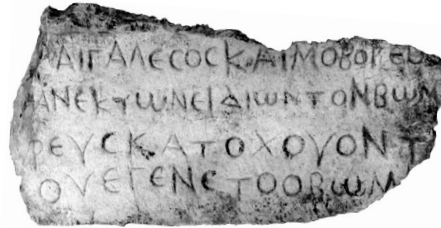 ΑΙΓΑΛΕϹΟϹΚΑΙΜΟΒΟΓΕ
ΑΝΕΚΤΩΝΕΙΔΙΩΝΤΟΝΒΩΜ
ΡΕΥϹΚΑΤΟΧΟΥΟΝΤ
ΟΥΕΓΕΝΕΤΟΟΒΩΜ